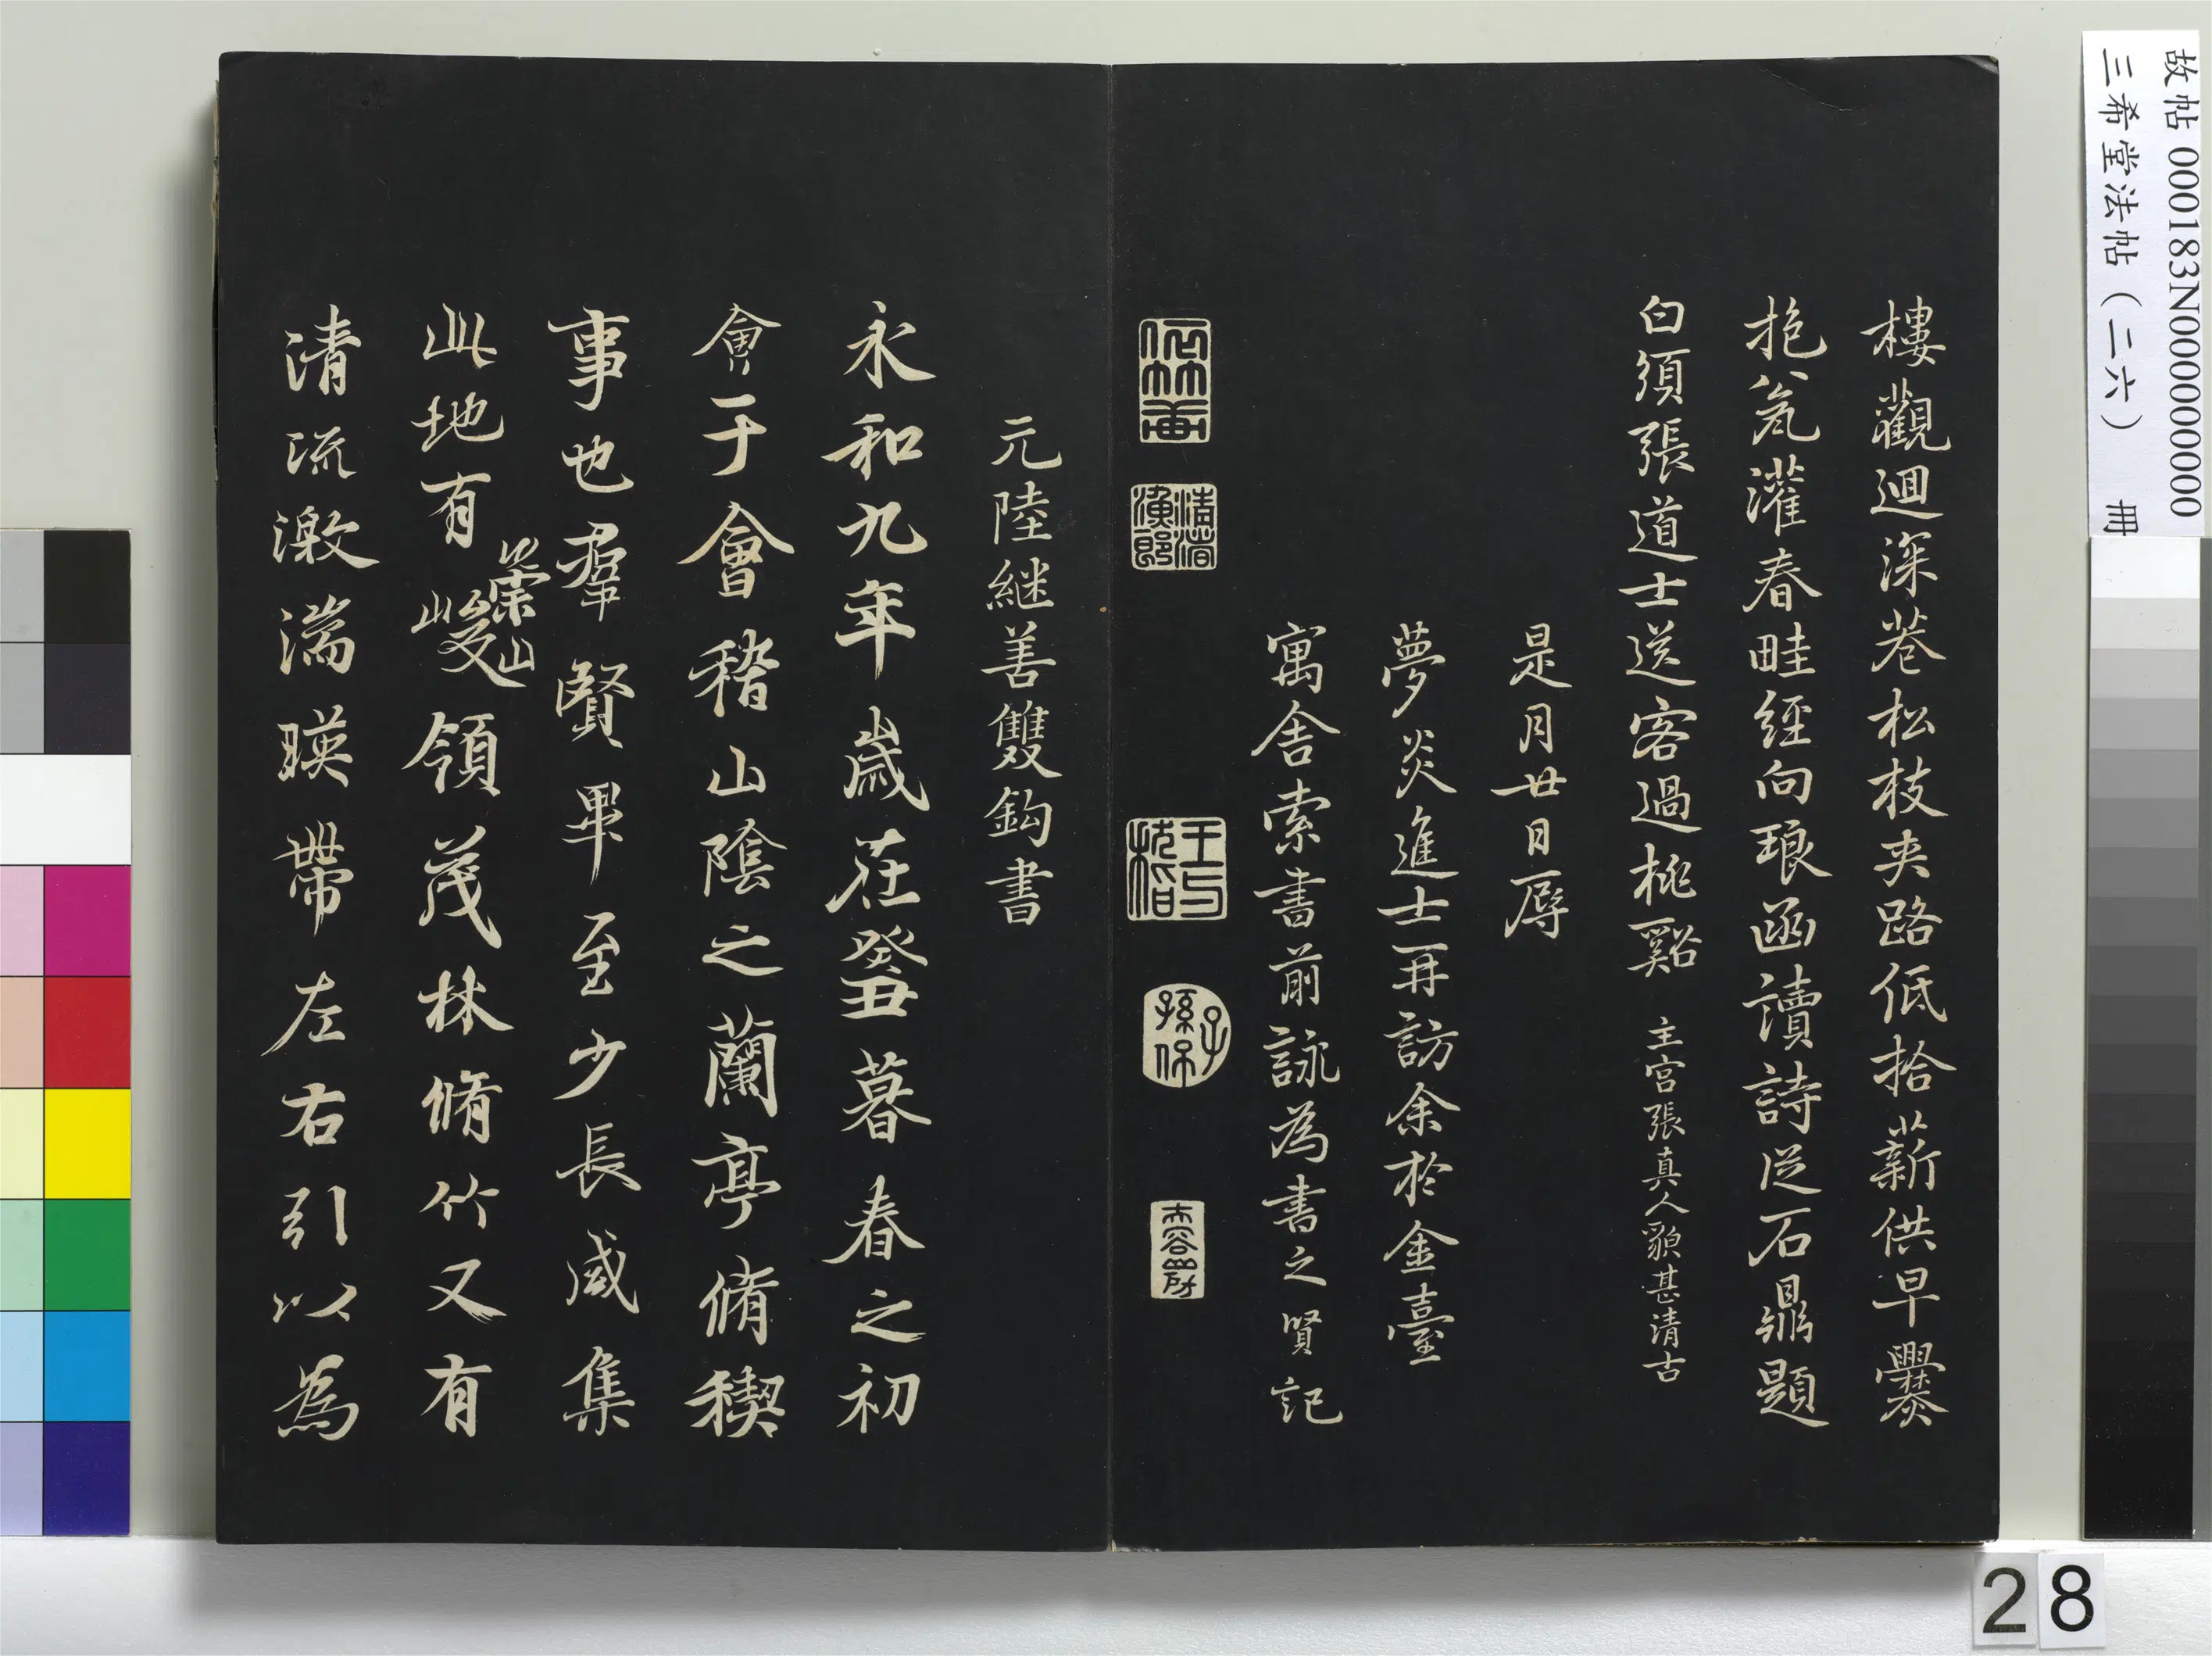 樓觀迴深巷松枝夾路低拾薪供早爨
抱瓮灌春畦經向琅函讀詩從石鼎題
白須張道士送客過桃谿 主宮張真人貌甚清古
是月廿日辱
夢炎進士再訪余於金臺
寓舍索書前詠為書之賢記
子孫保
元陸繼善雙鈎書
永和九年歲在癸丑暮春之初
會于會稽山陰之蘭亭脩稧
事也羣賢畢至少長咸集
此地有崇山峻領茂林脩竹又有
清流激湍暎帶左右引以為
故帖 000183N000000000
三希堂法帖（二六） 冊
28